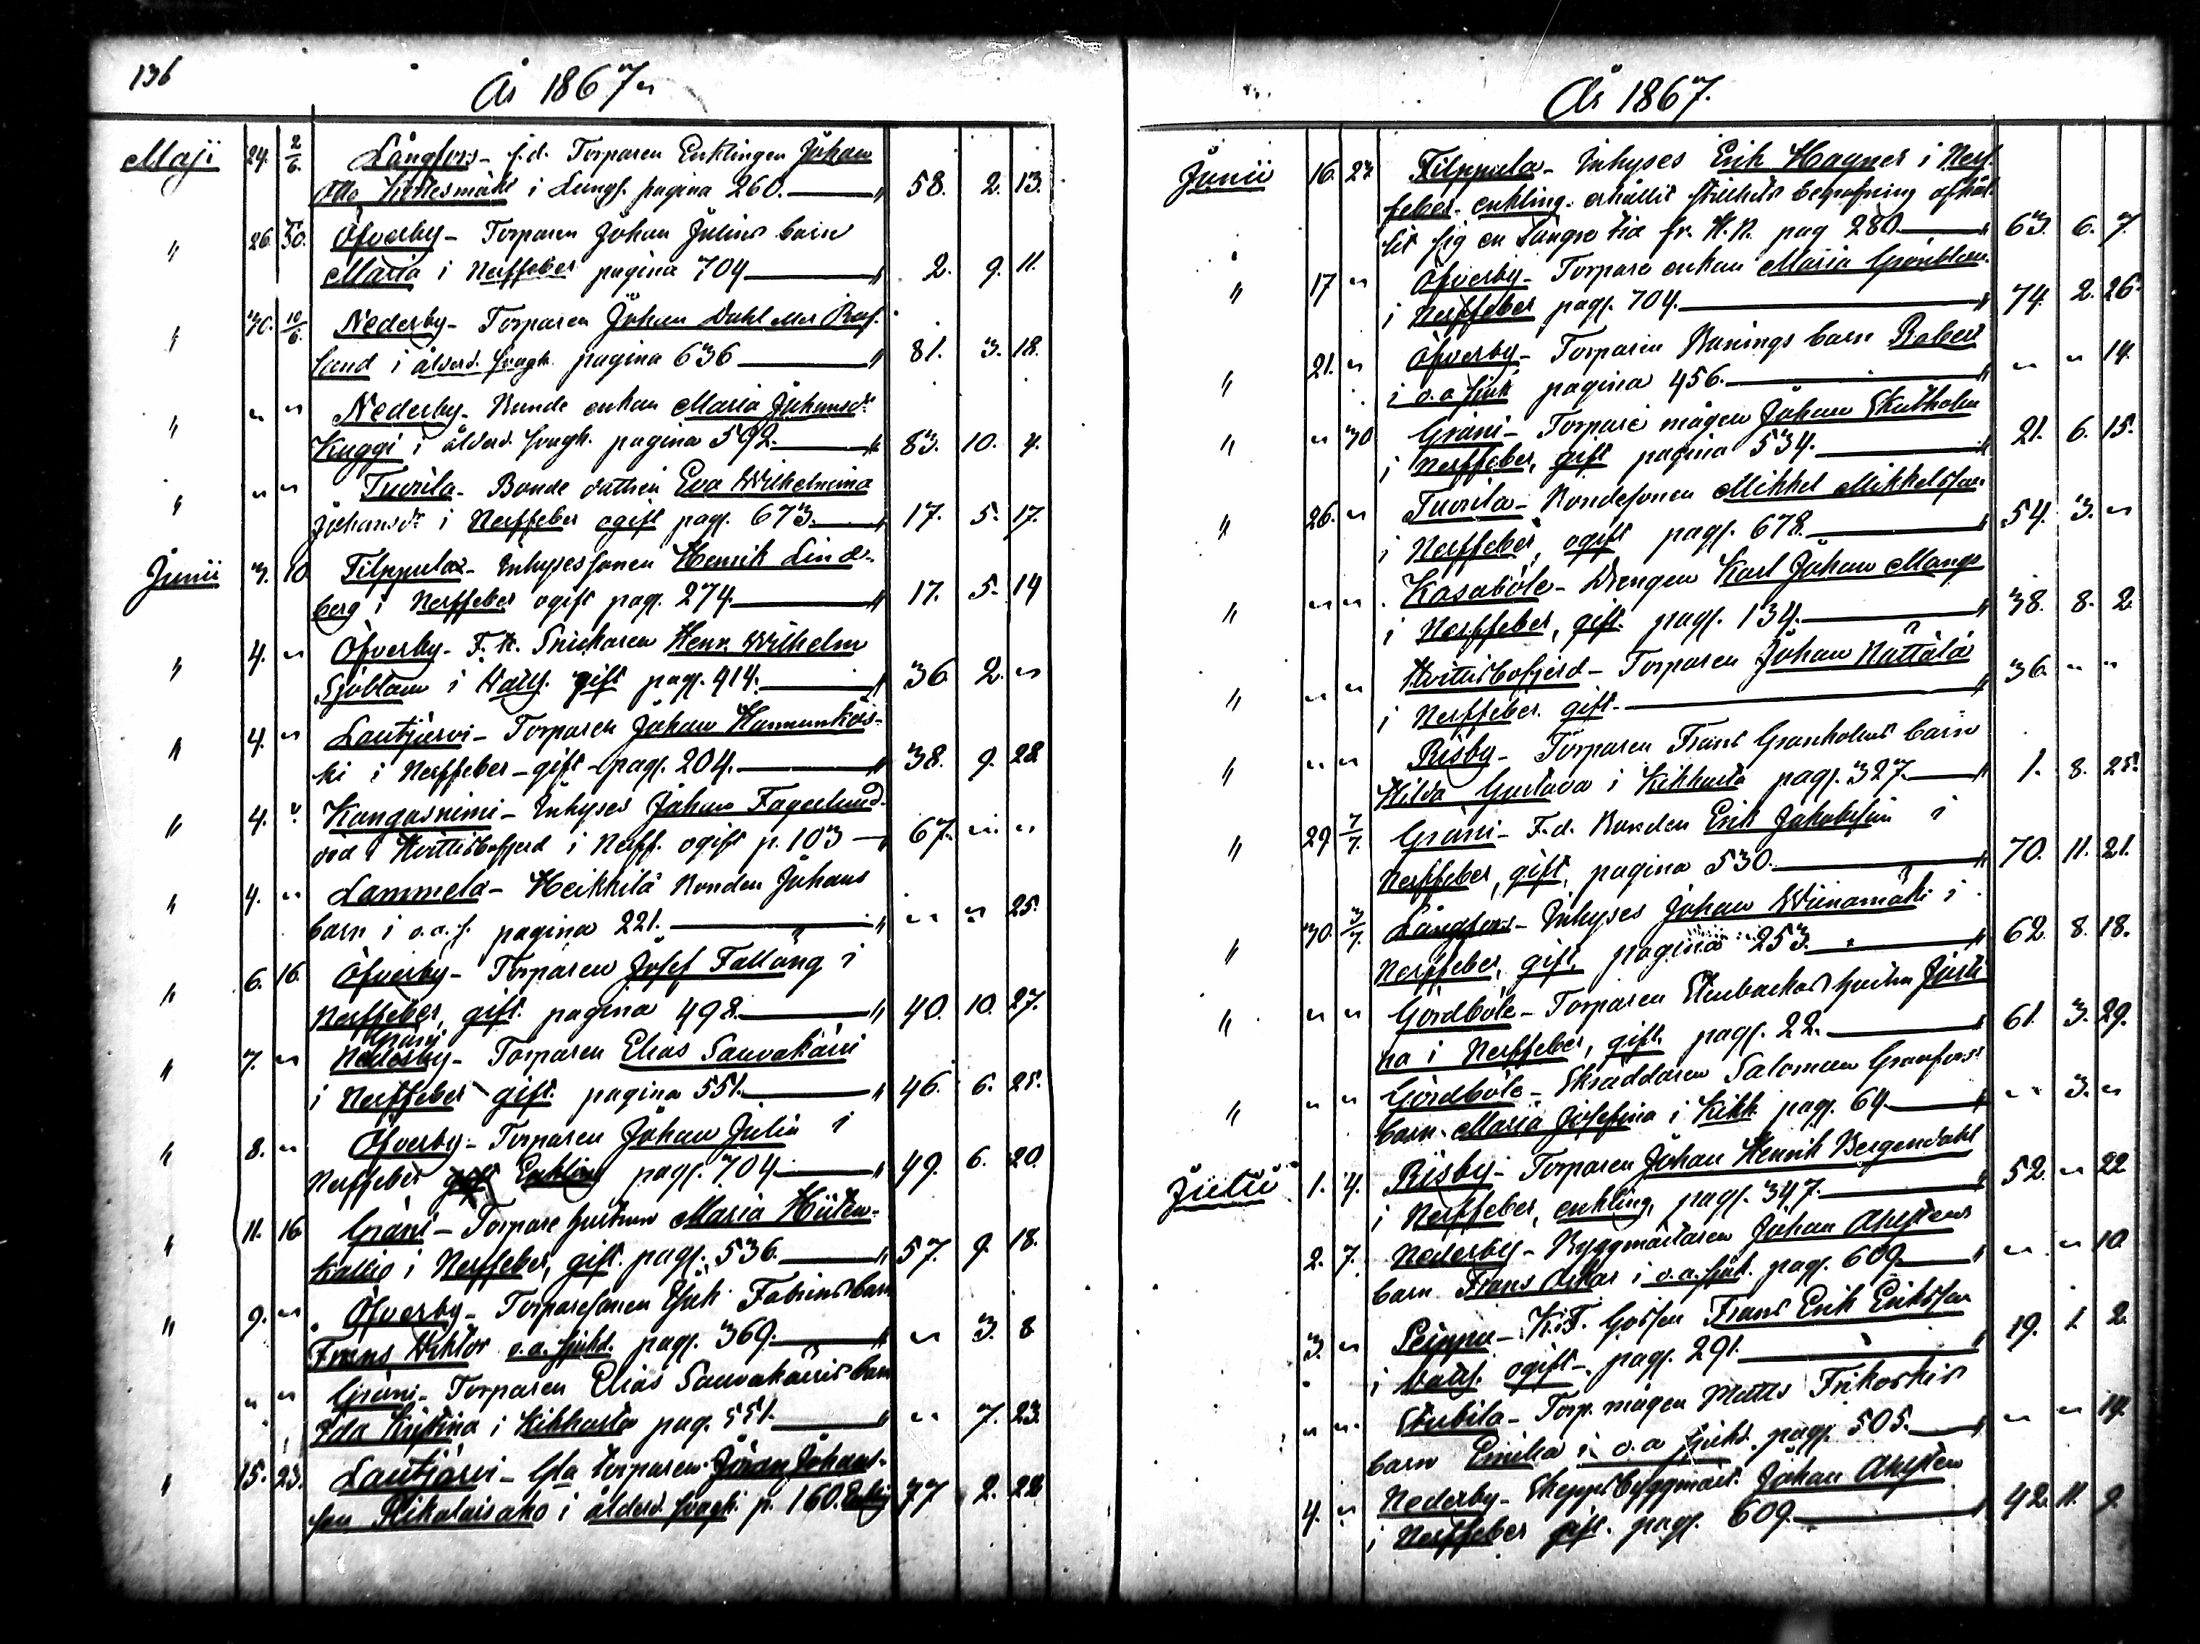 136
År 1867
Maji 24. 2/6. Långfors - f.d. Torparen Enklingen Johan
Otto i Lungs. pagina 260. 58. 2. 13.
" 26. 30. Öfverby - Torparen Johan Julins barn
Maria i Nerffeber pagina 704 2. 9. 11.
" 30. 10/6. Nederby - Torparen Johan Dahl
i ålderd. svagh. pagina 636 81. 3. 18.
" " " Nederby - Bonde enkan Maria Johansdr
Kuggi i ålderd. svagh. pagina 592. 83. 10. 4.
" " " Tuorila - Bonde dottren Eva Wilhelmina
Johansdr i Nerffeber ogift pag. 673. 17. 5. 17.
Junii 3. 10 Filppula - Inhysessonen Henrik Lind-
berg i Nerffeber ogift pag. 274. 17. 5. 14
" 4. " Öfverby - F.k. Snickaren Henr. Wilhelm
Sjöblom i gift pag. 414. 36 2. "
" 4. " Lautjärvi - Torparen Johan Hannunkos-
ki i Nerffeber - gift - pag. 204. 38. 9. 28
" 4. " Kangasniemi - Inhyses Johan Fagerlund
vid Hvittisbofjerd i Nerff. ogift p. 103 67. " "
" 4. " Lammela - Heikkilä Bonden Johans
barn i o.a.s. pagina 221. " " 25.
" 6. 16. Öfverby - Torparen Josef Fallång i
Nerffeber, gift. pagina 498. 40. 10. 27.
Gråni
" 7. " Nederby - Torparen Elias Sauvakäri
i Nerffeber gift. pagina 551. 46. 6. 25.
" 8. " Öfverby - Torparen Johan Julin i
Nerffeber gift Enkling pag. 704. 49. 6. 20.
" 11. 16. Gråni - Torpare hustrun Maria Hiiten-
kallio i Nerffeber, gift. pag. 536. 57. 9. 18.
" 9. " Öfverby - Torparesonen barn
Frans Viktor o.a. sjukd. pag. 369. " 3. 8
" " Gråni - Torparen Elias Sauvakäris barn
Ida Kristina i Kikhosta pag. 551. " 7. 23.
" 15. 23. Lautjärvi - Gla torparen Johan Johans-
son i ålderd. svagh. p. 160. Enkling 77 2. 22
År 1867.
Junii 16. 23 Filppula - Inhyses Erik Hagner i Nerf-
feber - enkling - erhållit stillhets begrafning
sig en längre tid fr. H.N. pag 280 63. 6. 7.
" 17 " Öfverby - Torpare enkan Maria Grönblom
i Nerffeber pag. 704. 74. 2. 26.
" 21. " Öfverby - Torparen barn Robert
i o.a. sjuk pagina 456. " " 14.
" " 30 Gråni - Torpare mågen Johan Ekholm
i Nerffeber, gift pagina 534. 21. 6. 15.
" 26. " Tuorila - Bondesonen Mikkel Mikkelsson
i Nerffeber, ogift pag. 678. 54. 3. "
" " " Kasaböle - Drengen Karl Johan Mangs
i Nerffeber, gift. pag. 134. 38. 8. 2
" " " Hvittisbofjerd - Torparen Johan Nättälä
i Nerffeber. gift. 36. " "
" " " Risby - Torparen Frans Granholms barn
Hilda Gustava i Kikhosta pag. 327. 1. 8. 25.
" 29 7/7. Gråni - F.d. Bonden Erik Jakobsson i
Nerffeber, gift, pagina 530. 70. 11. 21.
" 30. 7/7. Långfors - Inhyses Johan Wiinamäki i
Nerffeber, gift. pagina 253. 62. 8. 18.
" " " Gårdböle - Torparen Stenbackas hustru Justi-
na i Nerffeber, gift. pag. 22. 61. 3. 29.
" " " Gårdböle - Skräddaren Salomon Granfors
barn Maria Josefina i Kikh. pag. 64. " 3. "
Julii 1. 7. Risby - Torparen Johan Henrik Bergendahl
i Nerffeber, enkling, pag. 347. 52. " 22
2. 7. Nederby - Byggmästaren Johan Ahlstens
barn Frans Oskar i o.a. sjuk. pag. 609. " " 10
3. " Peippu - K.F. Gossen Frans Erik Eriksson
i ogift - pag. 291. 19. 1. 2.
" " Stubila - Torp. mågen Matts
barn Emilia i o.a sjukd. pag. 505. " " 14.
4. " Nederby - Skeppsbyggmäst. Johan Ahlsten
i Nerffeber gift. pag. 609. 42. 11. 9.